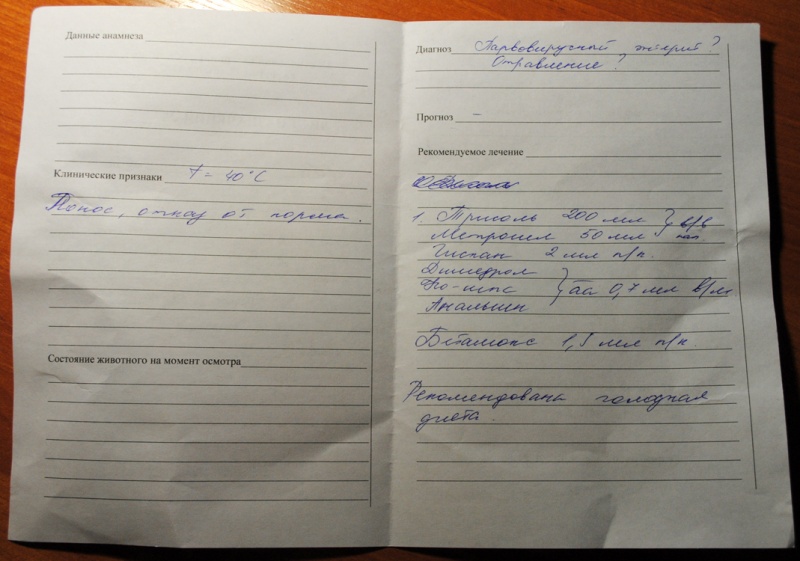 Данные анамнеза
Клинические признаки t = 40°C
Понос, отказ от корма.
Состояние животного на момент осмотра
Диагноз Парвовирусный энтерит?
Отравление?
Прогноз –
Рекомендуемое лечение
1. Трисоль 200 мл } в/в
Метрогил 50 мл кап
2 мл п/к.
Димедрол
Но-шпа } аа 0,7 мл в/м
Анальгин
Бетамокс 1,5 мл п/к.
Рекомендована голодная
диета.